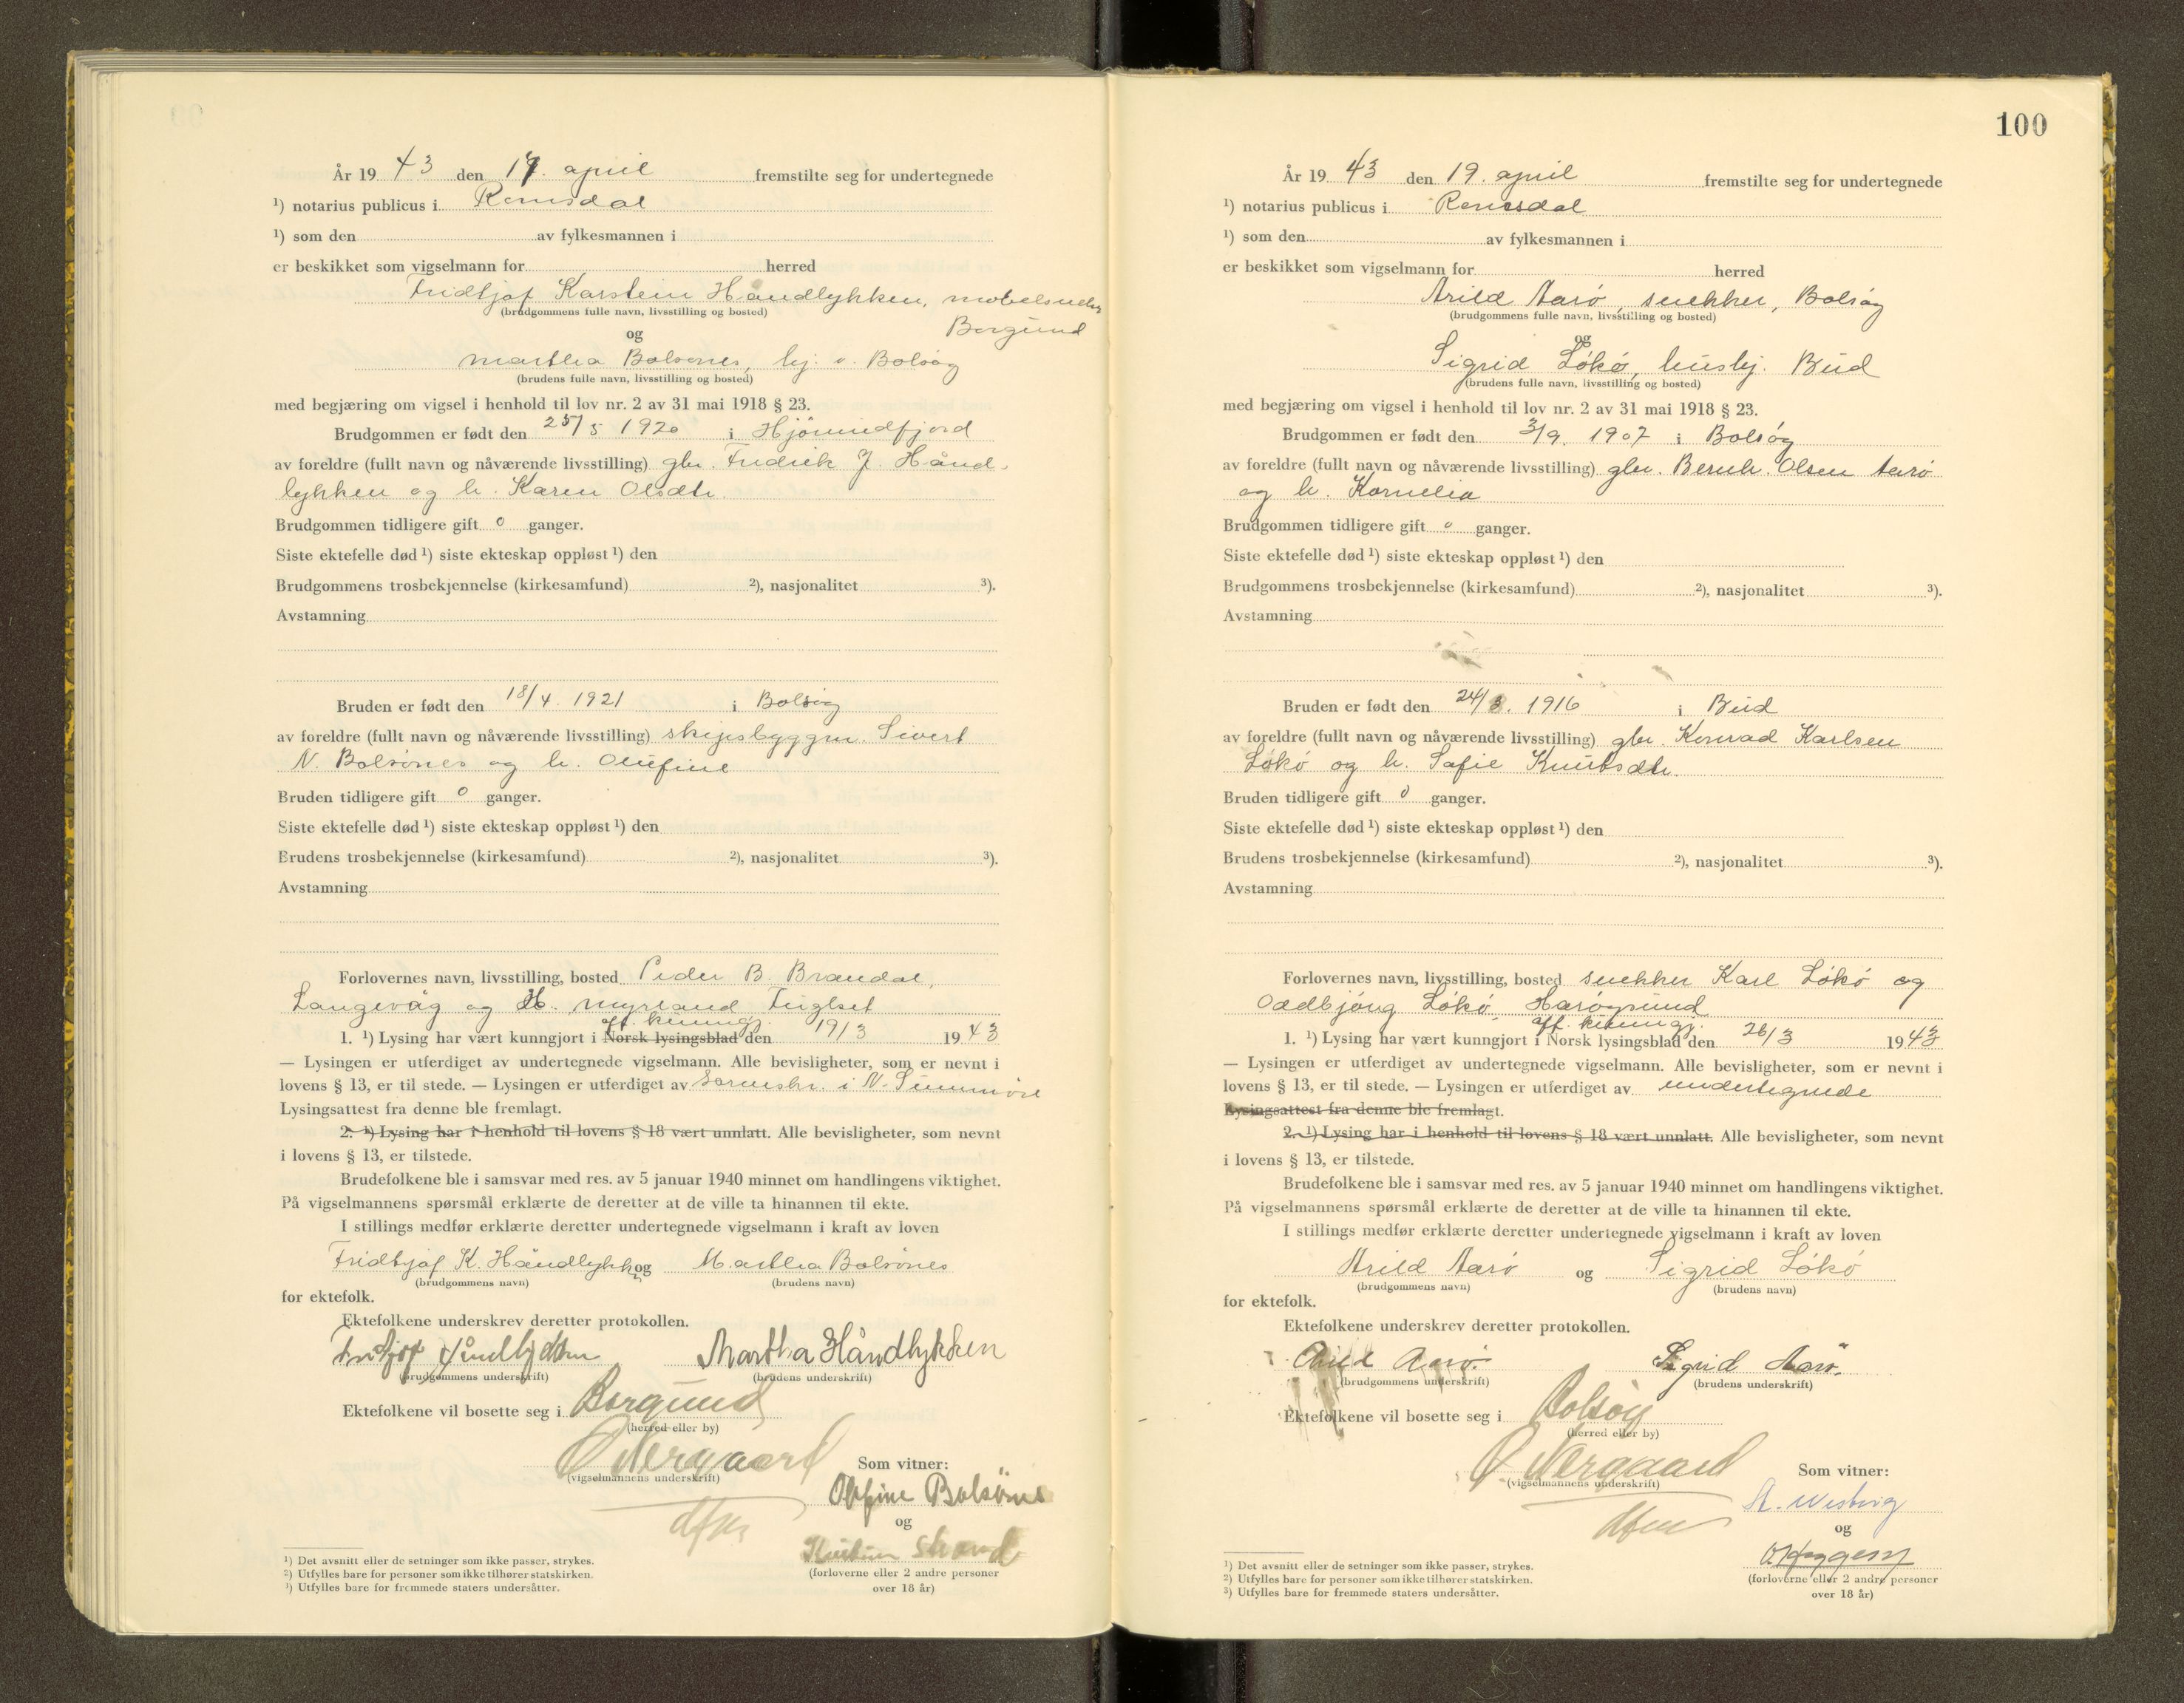 År 19 43 den 17. april fremstilte seg for undertegnede
¹) notarius publicus i Romsdal
¹) som den av fylkesmannen i
er beskikket som vigselmann for herred
Fridtjof Karstein Håndlykken, møbelsnekker
(brudgommens fulle navn, livsstilling og bosted)
Borgund
og
Martha Bolsønes, hj. v. Bolsøy
(brudens fulle navn, livsstilling og bosted)
med begjæring om vigsel i henhold til lov nr. 2 av 31 mai 1918 § 23.
Brudgommen er født den 25/5 1920 i Hjørundfjord
av foreldre (fullt navn og nåværende livsstilling) gbr. Fredrik J. Hånd-
lykken og h. Karen Olsdtr.
Brudgommen tidligere gift 0 ganger.
Siste ektefelle død ¹) siste ekteskap oppløst ¹) den
Brudgommens trosbekjennelse (kirkesamfund) ²), nasjonalitet ³).
Avstamning
Bruden er født den 18/4. 1921 i Bolsøy
av foreldre (fullt navn og nåværende livsstilling) skipsbyggm. Sivert
N. Bolsønes og h. Olufine
Bruden tidligere gift 0 ganger.
Siste ektefelle død ¹) siste ekteskap oppløst ¹) den
Brudens trosbekjennelse (kirkesamfund) ²), nasjonalitet ³).
Avstamning
Forlovernes navn, livsstilling, bosted Peder B. Brandal,
Langevåg og H. Myrland Fuglset
off. kunngj.
1. ¹) Lysing har vært kunngjort i Norsk lysingsblad den 19/3 19 43
— Lysingen er utferdiget av undertegnede vigselmann. Alle bevisligheter, som er nevnt i
lovens § 13, er til stede. — Lysingen er utferdiget av sorenskr. i N. Sunnmøre
Lysingsattest fra denne ble fremlagt.
2. ¹) Lysing har i henhold til lovens § 18 vært unnlatt. Alle bevisligheter, som nevnt
i lovens § 13, er tilstede.
Brudefolkene ble i samsvar med res. av 5 januar 1940 minnet om handlingens viktighet.
På vigselmannens spørsmål erklærte de deretter at de ville ta hinannen til ekte.
I stillings medfør erklærte deretter undertegnede vigselmann i kraft av loven
Fridtjof K. Håndlykken og Martha Bolsønes
(brudgommens navn) (brudens navn)
for ektefolk.
Ektefolkene underskrev deretter protokollen.
Fritjof Håndlykken Martha Håndlykken
(brudgommens underskrift) (brudens underskrift)
Ektefolkene vil bosette seg i Borgund
(herred eller by)
Ø Nergaard
(vigselmannens underskrift)
Som vitner:
Olufine Bolsönes
og
Strand
(forloverne eller 2 andre personer
over 18 år)
¹) Det avsnitt eller de setninger som ikke passer, strykes.
²) Utfylles bare for personer som ikke tilhører statskirken.
³) Utfylles bare for fremmede staters undersåtter.
100
År 19 43 den 19. april fremstilte seg for undertegnede
¹) notarius publicus i Romsdal
¹) som den av fylkesmannen i
er beskikket som vigselmann for herred
Arild Aarø, snekker, Bolsøy
(brudgommens fulle navn, livsstilling og bosted)
og
Sigrid Løkø, hushj. Bud
(brudens fulle navn, livsstilling og bosted)
med begjæring om vigsel i henhold til lov nr. 2 av 31 mai 1918 § 23.
Brudgommen er født den 3/9. 1907 i Bolsøy
av foreldre (fullt navn og nåværende livsstilling) gbr. Bernh. Olsen Aarø
og h. Kornelia
Brudgommen tidligere gift 0 ganger.
Siste ektefelle død ¹) siste ekteskap oppløst ¹) den
Brudgommens trosbekjennelse (kirkesamfund) ²), nasjonalitet ³).
Avstamning
Bruden er født den 24/8. 1916 i Bud
av foreldre (fullt navn og nåværende livsstilling) gbr. Konrad Karlsen
Løkø og h. Safie Knutsdtr.
Bruden tidligere gift 0 ganger.
Siste ektefelle død ¹) siste ekteskap oppløst ¹) den
Brudens trosbekjennelse (kirkesamfund) ²), nasjonalitet ³).
Avstamning
Forlovernes navn, livsstilling, bosted snekker Karl Løkø og
Oddbjørg Løkø, Harøysund
off. kunngj.
1. ¹) Lysing har vært kunngjort i Norsk lysingsblad den 26/3 19 43
— Lysingen er utferdiget av undertegnede vigselmann. Alle bevisligheter, som er nevnt i
lovens § 13, er til stede. — Lysingen er utferdiget av undertegnede
Lysingsattest fra denne ble fremlagt.
2. ¹) Lysing har i henhold til lovens § 18 vært unnlatt. Alle bevisligheter, som nevnt
i lovens § 13, er tilstede.
Brudefolkene ble i samsvar med res. av 5 januar 1940 minnet om handlingens viktighet.
På vigselmannens spørsmål erklærte de deretter at de ville ta hinannen til ekte.
I stillings medfør erklærte deretter undertegnede vigselmann i kraft av loven
Arild Aarø og Sigrid Løkø
(brudgommens navn) (brudens navn)
for ektefolk.
Ektefolkene underskrev deretter protokollen.
Arild Aarø. Sigrid Aarø.
(brudgommens underskrift) (brudens underskrift)
Ektefolkene vil bosette seg i Bolsøy
(herred eller by)
Ø Nergaard
(vigselmannens underskrift)
Som vitner:
og
(forloverne eller 2 andre personer
over 18 år)
¹) Det avsnitt eller de setninger som ikke passer, strykes.
²) Utfylles bare for personer som ikke tilhører statskirken.
³) Utfylles bare for fremmede staters undersåtter.